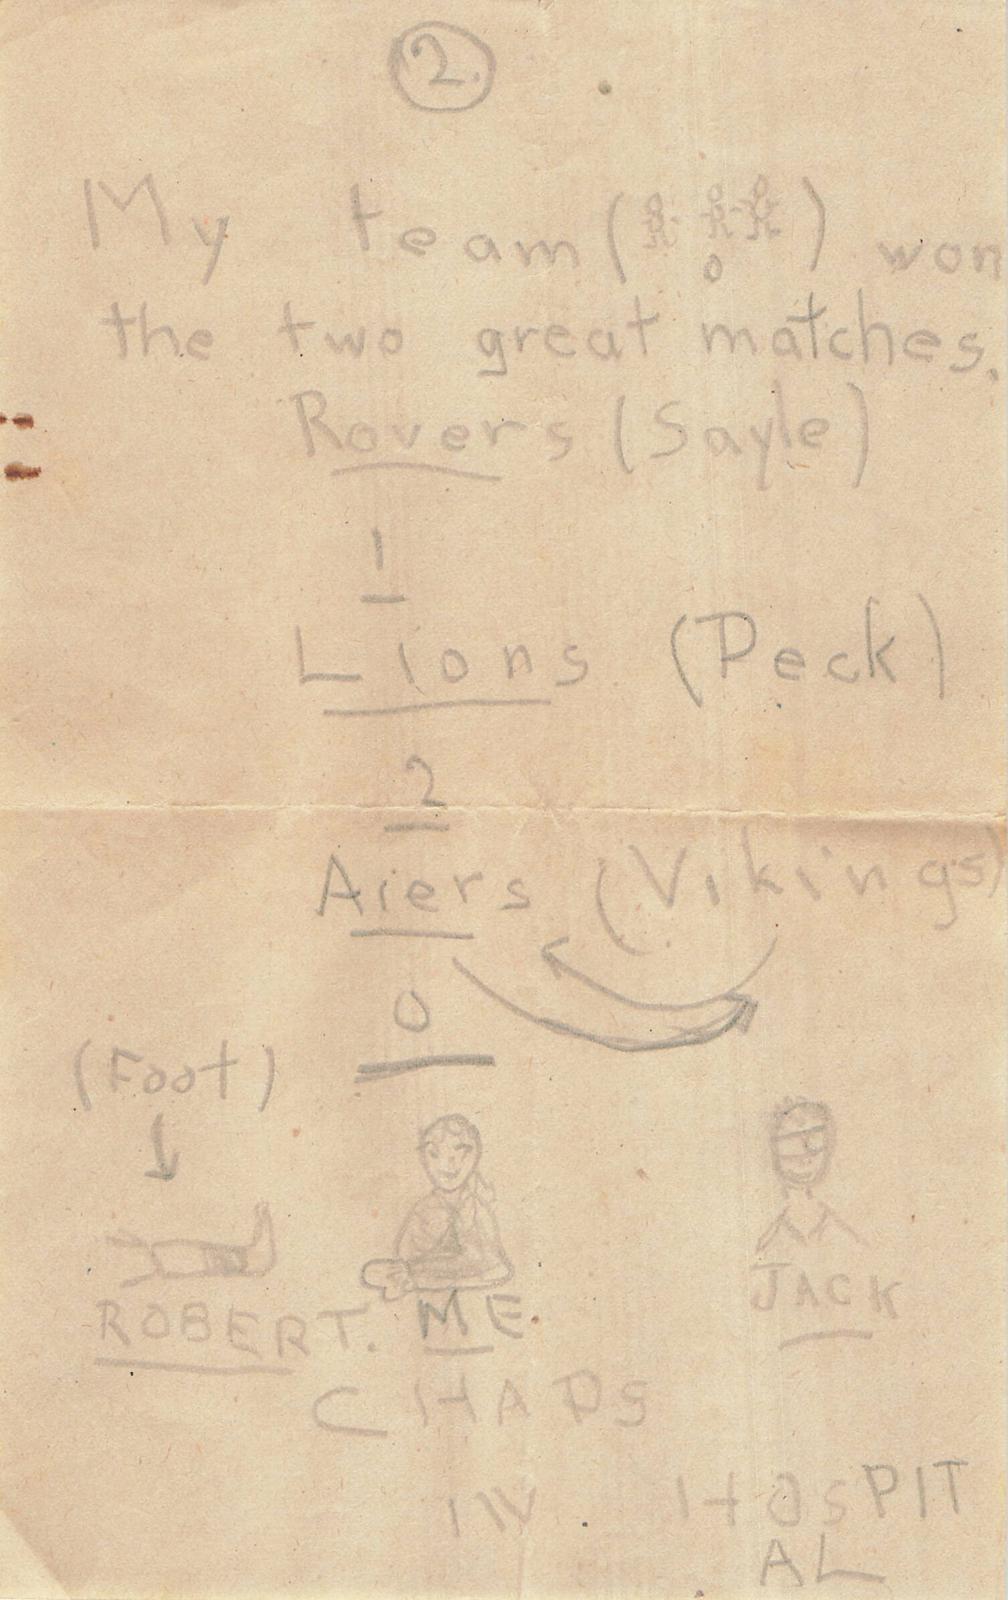 2.
My team ( ) won
the two great matches.
Rovers (Sayle)
1
Lions (Peck)
2
Aiers (Vikings)
0
(Foot)
ROBERT. ME. JACK
CHAPS
IN HOSPIT
AL